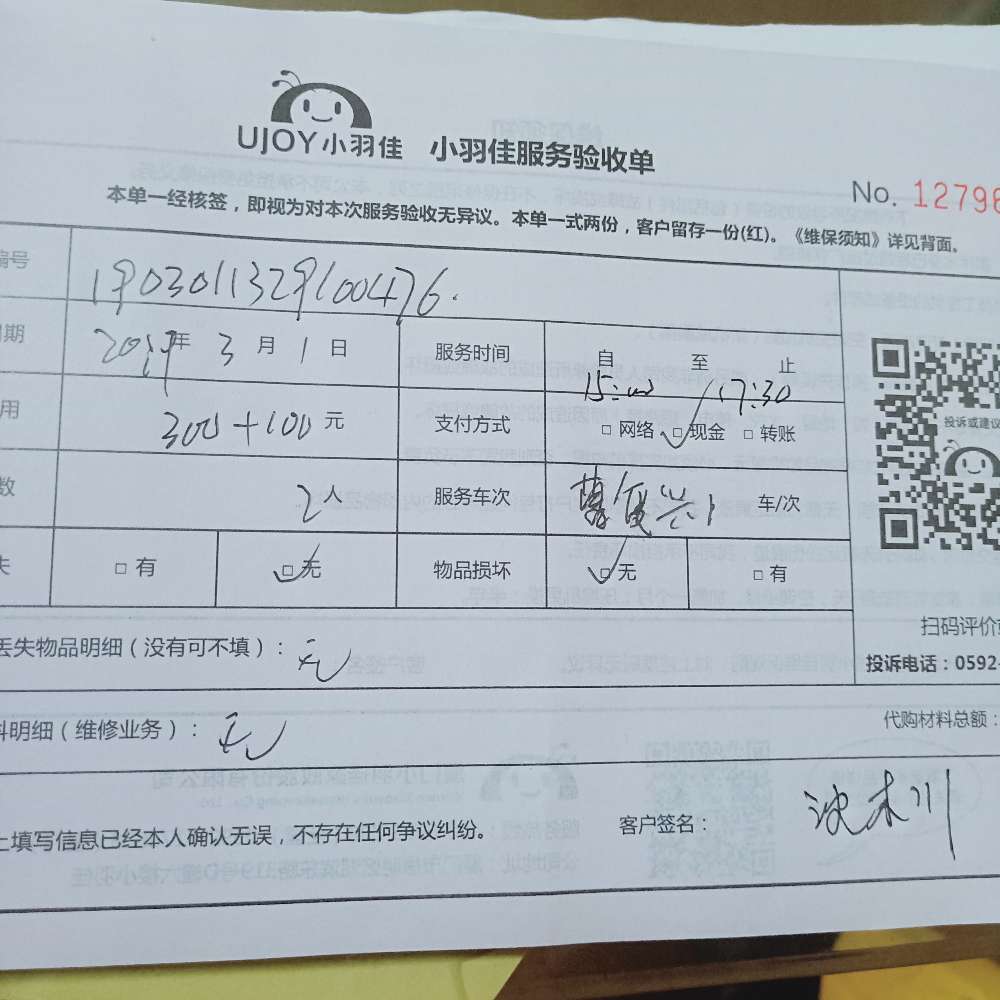 UJOY小羽佳 小羽佳服务验收单
No. 12796
本单一经核签，即视为对本次服务验收无异议。本单一式两份，客户留存一份(红)。《维保须知》详见背面。
编号 1903011329100476.
期 2019年 3月 1日 服务时间 自 15:00 至 17:30 止
用 300+100元 支付方式 □网络 □现金 □转账
投诉或建议
数 2人 服务车次 1 车/次
失 □有 □无 物品损坏 □无 □有
扫码评价
丢失物品明细（没有可不填）：无
投诉电话：0592-
料明细（维修业务）：无
代购材料总额：
上填写信息已经本人确认无误，不存在任何争议纠纷。 客户签名：